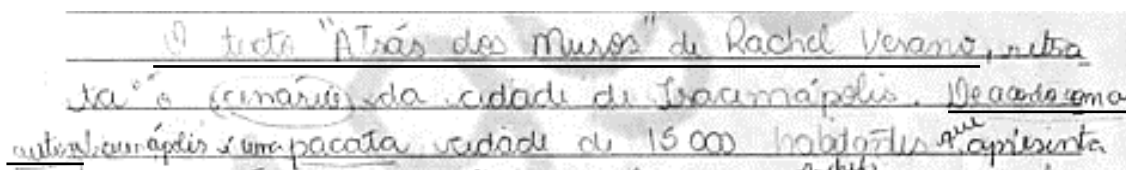 O texto "Atrás dos Muros" de Rachel Verano, retra
ta o cenário da cidade de Iracemápolis. De acordo com a
autora Iracemápolis é uma pacata cidade de 15000 habitantes que apresenta